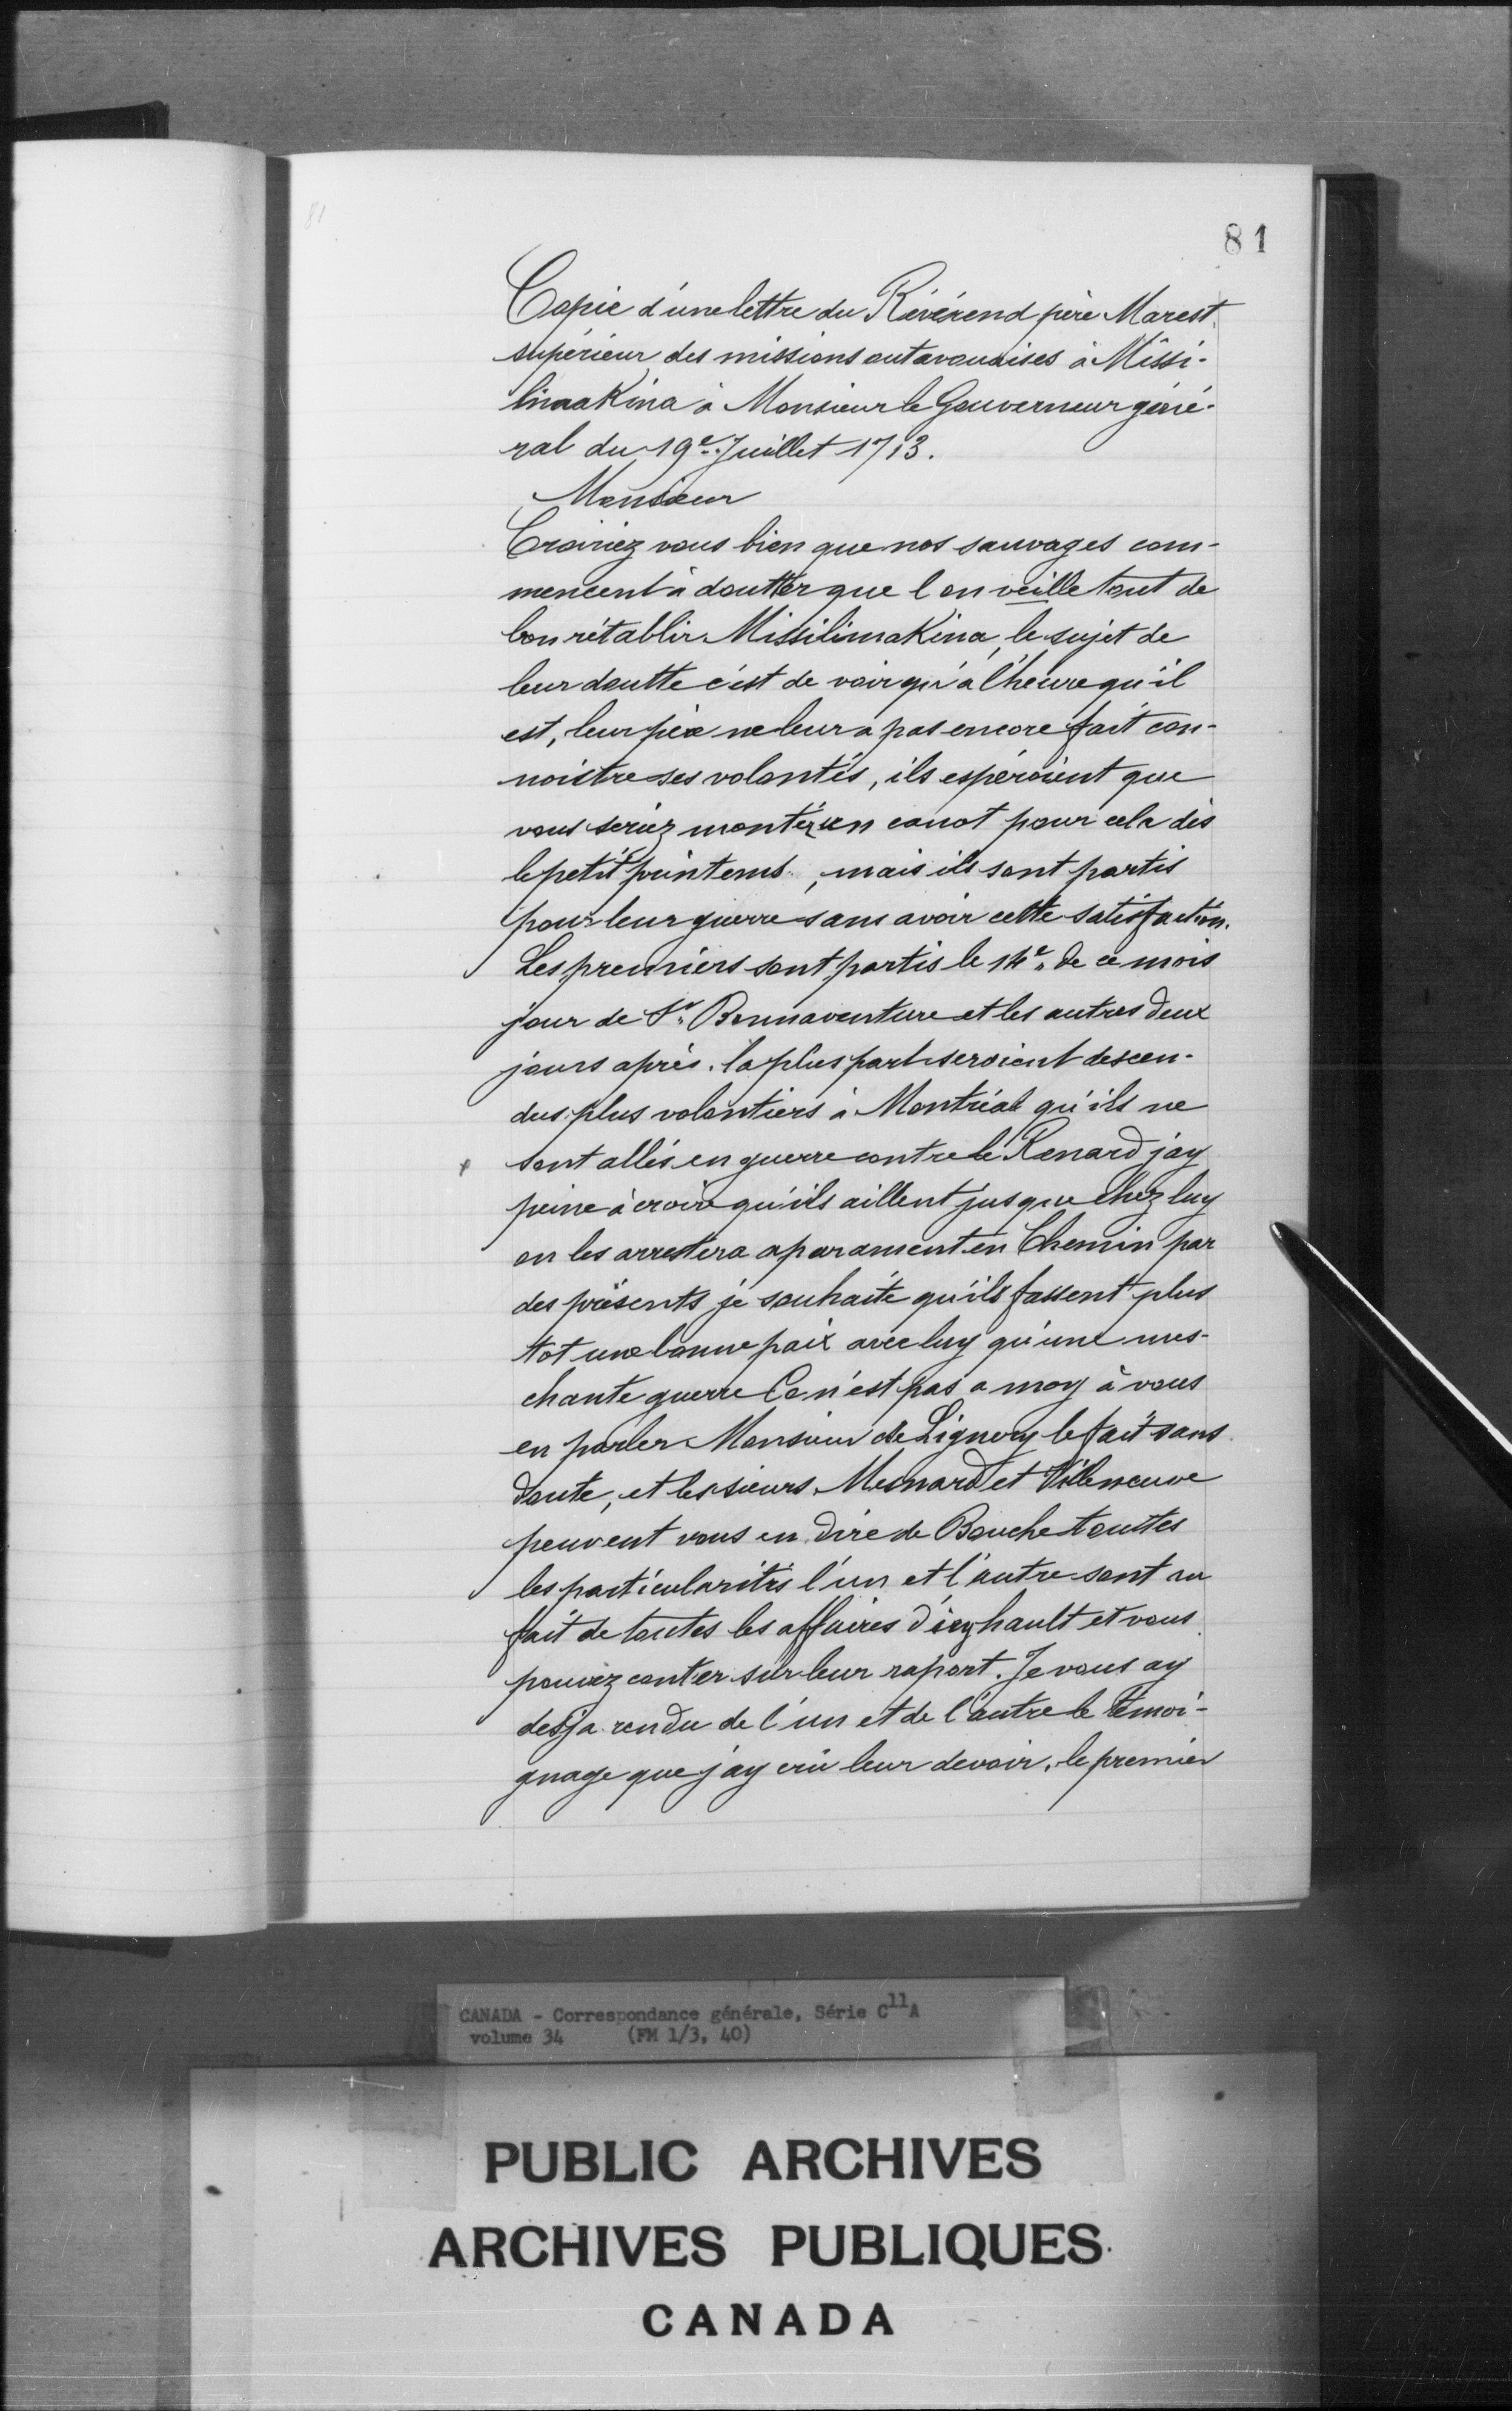 81
81
Copie d'une lettre du Révérend père Marest
supérieur des missions outavouaises à Missi-
linaakina à Monsieur le Gouverneur géné-
ral du 19e Juillet 1713.
Monsieur
Croiriez vous bien que nos sauvages com-
mencent à doutter que l'on veille tout de
bon rétablir Missilimakina, le sujet de
leur doutte c'est de voir qu'à l'heure qu'il
est, leur père ne leur a pas encore fait con-
noistre ses volontés, ils espéroient que
vous seriez monter un canot pour cela dès
le petit printems, mais ils sont partis
pour leur guerre sans avoir cette satisfaction.
Les premiers sont partis le 14e de ce mois
jour de St Bonnaventure et les autres deux
jours après. la plus part seroient descen-
dus plus volontiers à Montréal qu'ils ne
sont allés en guerre contre le Renard j'ay
peine à croire qu'ils aillent jusque chez luy
on les arrestera aparament en Chemin par
des présents je souhaite qu'ils fassent plus
tot une bonne paix avec luy qu'une mes-
chante guerre Ce n'est pas a moy à vous
en parler Monsieur de Lignery le fait sans
doute, et les sieurs Mesnard et Villeneuve
peuvent vous en dire de Bouche touttes
les particularités l'un et l'autre sont au
fait de toutes les affaires d'icy hault et vous
pouvez conter sur leur raport. Je vous ay
desja rendu de l'un et de l'autre le témoi-
gnage que j'ay crû leur devoir, le premier
CANADA - Correspondance générale, Série C11A
volume 34 (FM 1/3, 40)
PUBLIC ARCHIVES
ARCHIVES PUBLIQUES
CANADA